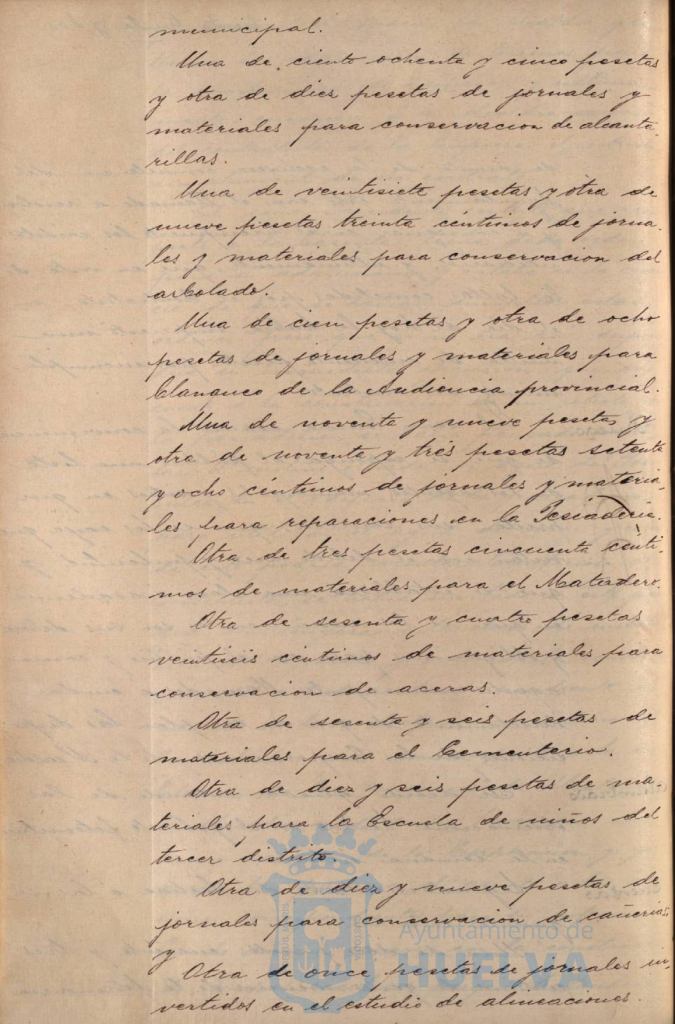 municipal.
Una de ciento ochenta y cinco pesetas
y otra de diez pesetas de jornales y
materiales para conservacion de alcanta-
rillas.
Una de veintisiete pesetas y otra de
nueve pesetas treinta céntimos de jorna-
les y materiales para conservacion del
arbolado.
Una de cien pesetas y otra de ocho
pesetas de jornales y materiales para
blanqueo de la Audiencia provincial.
Una de noventa y nueve pesetas y
otra de noventa y tres pesetas setenta
y ocho céntimos de jornales y materia-
les para reparaciones en la Pescaderia.
Otra de tres pesetas cincuenta cénti-
mos de materiales para el Matadero.
Otra de sesenta y cuatro pesetas
veintiseis céntimos de materiales para
conservacion de aceras.
Otra de sesenta y seis pesetas de
materiales para el Cementerio.
Otra de diez y seis pesetas de ma-
teriales para la Escuela de niños del
tercer distrito.
Otra de diez y nueve pesetas de
jornales para conservacion de cañerias,
y
Otra de once pesetas de jornales in-
vertidos en el estudio de alineaciones.
Ayuntamiento de
HUELVA